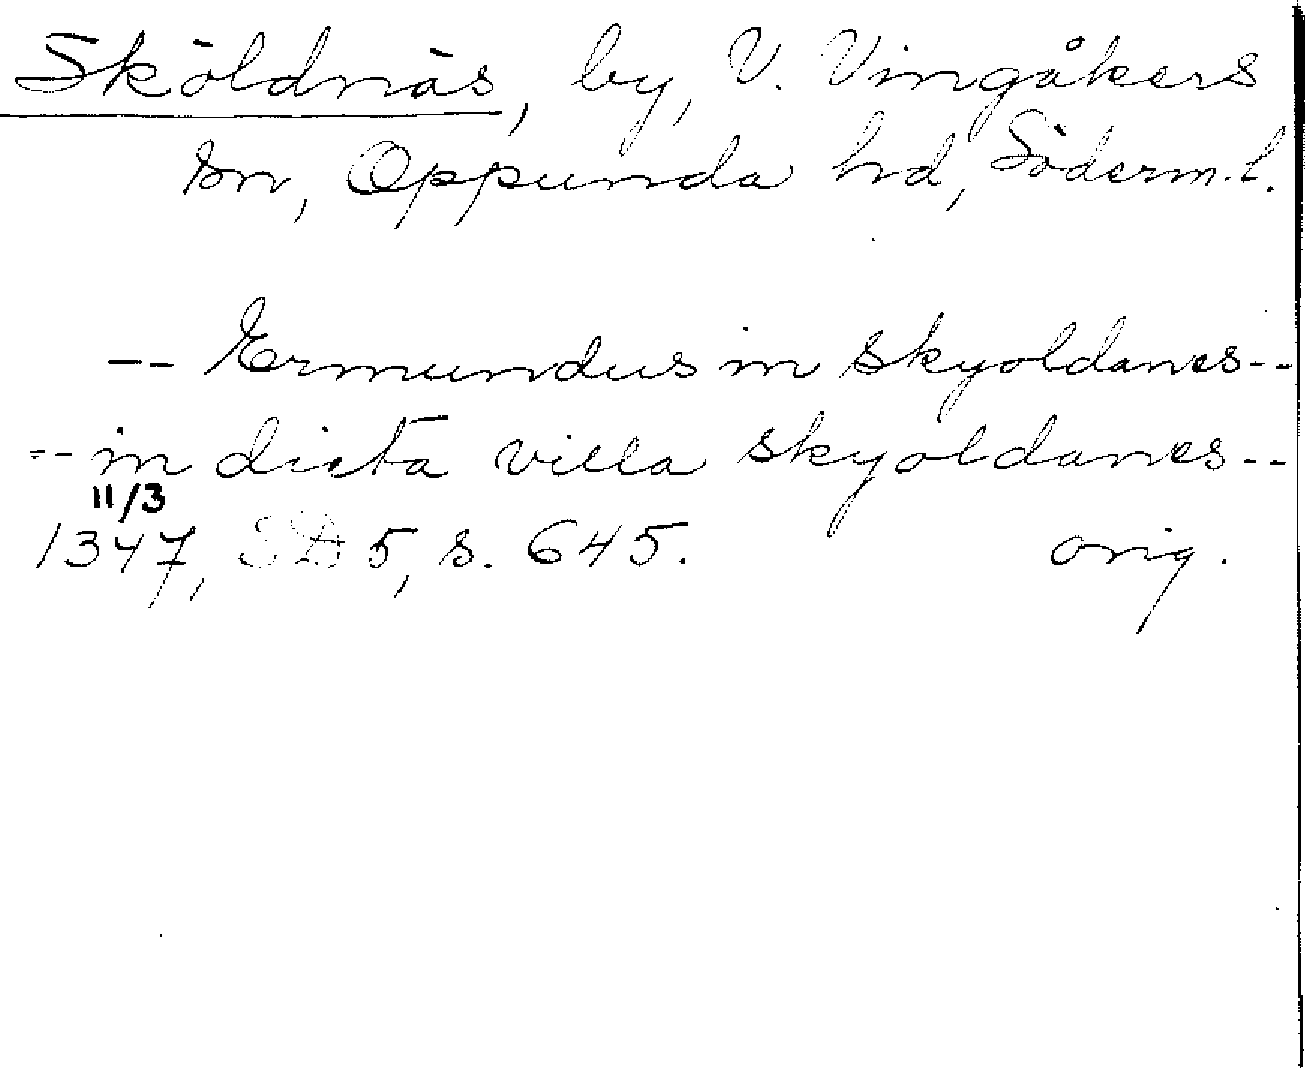 Sköldnäs, by, V. Vingåkers
sn, Oppunda hd, Söderm. l.
-- Ermundus in skyoldanes--
-- in dicta villa skyoldanes--
11/3
1347, SD 5, s. 645. orig.